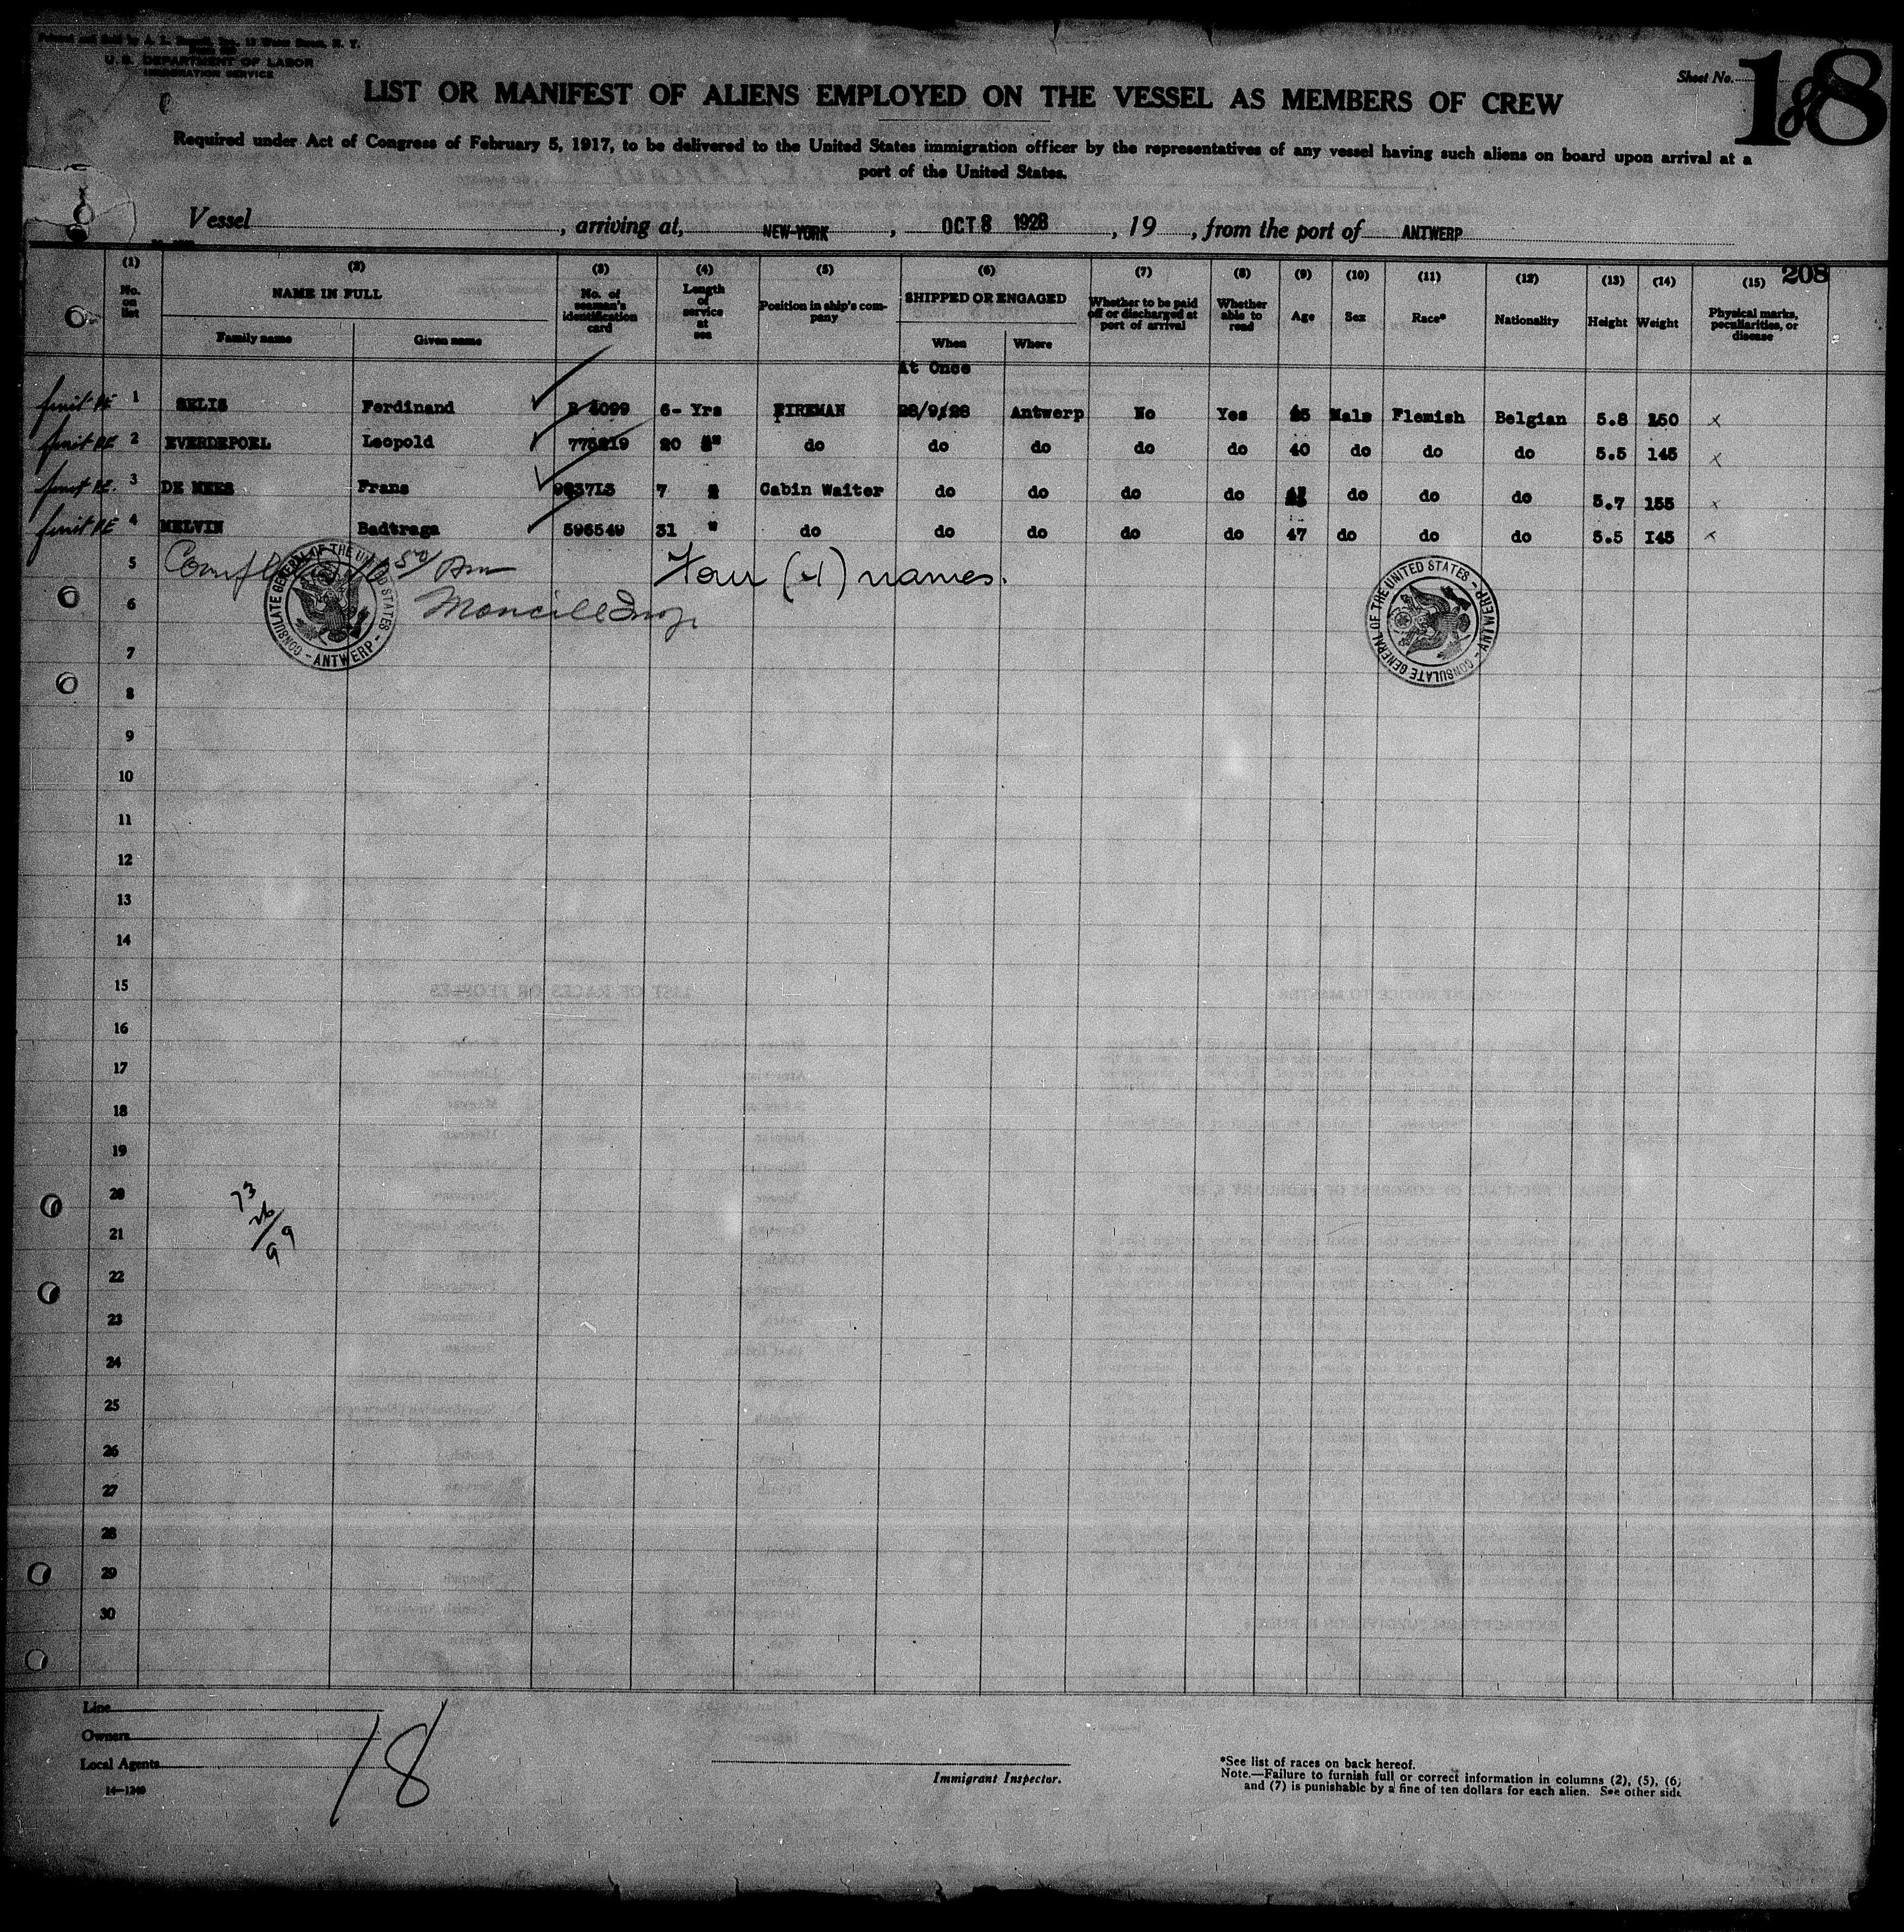 U. S. DEPARTMENT OF LABOR
IMMIGRATION SERVICE
Sheet No.
188
LIST OR MANIFEST OF ALIENS EMPLOYED ON THE VESSEL AS MEMBERS OF CREW
Required under Act of Congress of February 5, 1917, to be delivered to the United States immigration officer by the representatives of any vessel having such aliens on board upon arrival at a
port of the United States.
Vessel , arriving at, NEW-YORK , OCT 8 1928 , 19 , from the port of ANTWERP
208
(1) (2) (3) (4) (5) (6) (7) (8) (9) (10) (11) (12) (13) (14) (15)
No. on list NAME IN FULL Family name Given name No. of seaman's identification card Length of service at sea Position in ship's company SHIPPED OR ENGAGED When Where Whether to be paid off or discharged at port of arrival Whether able to read Age Sex Race* Nationality Height Weight Physical marks, peculiarities, or disease
At Once
1 SELIS Ferdinand 6- Yrs FIREMAN 28/9/28 Antwerp No Yes Male Flemish Belgian 5.8 x
2 EVERDEPOEL Leopold 775219 20 " do do do do do 40 do do do 5.5 145 x
3 DE MEES Frans 7 Cabin Waiter do do do do do do do 5.7 155 x
4 MELVIN Badtraga 596549 31 " do do do do do 47 do do do 5.5 145 x
5 Four (4) names.
CONSULATE GENERAL OF THE UNITED STATES - ANTWERP -
CONSULATE GENERAL OF THE UNITED STATES - ANTWERP -
6
7
8
9
10
11
12
13
14
15
16
17
18
19
20
21
22
23
24
25
26
27
28
29
30
73
26/
99
Line
Owners
Local Agents
14—1240
18
Immigrant Inspector.
*See list of races on back hereof.
Note.—Failure to furnish full or correct information in columns (2), (5), (6,
and (7) is punishable by a fine of ten dollars for each alien. See other side